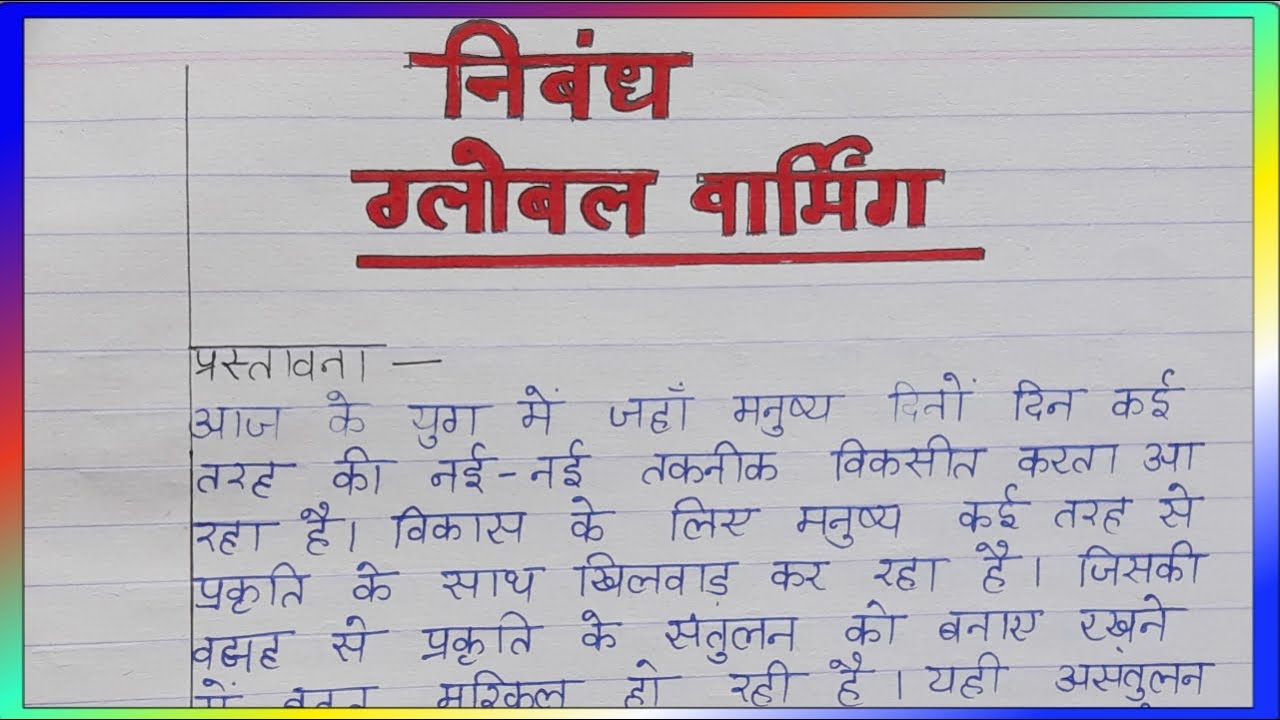 निबंध
ग्लोबल वार्मिंग
प्रस्तावना —
आज के युग में जहाँ मनुष्य दिनों दिन कई
तरह की नई-नई तकनीक विकसीत करता आ
रहा है। विकास के लिए मनुष्य कई तरह से
प्रकृति के साथ खिलवाड़ कर रहा है। जिसकी
वजह से प्रकृति के संतुलन को बनाए रखने
में बहुत मुश्किल हो रही है। यही असंतुलन